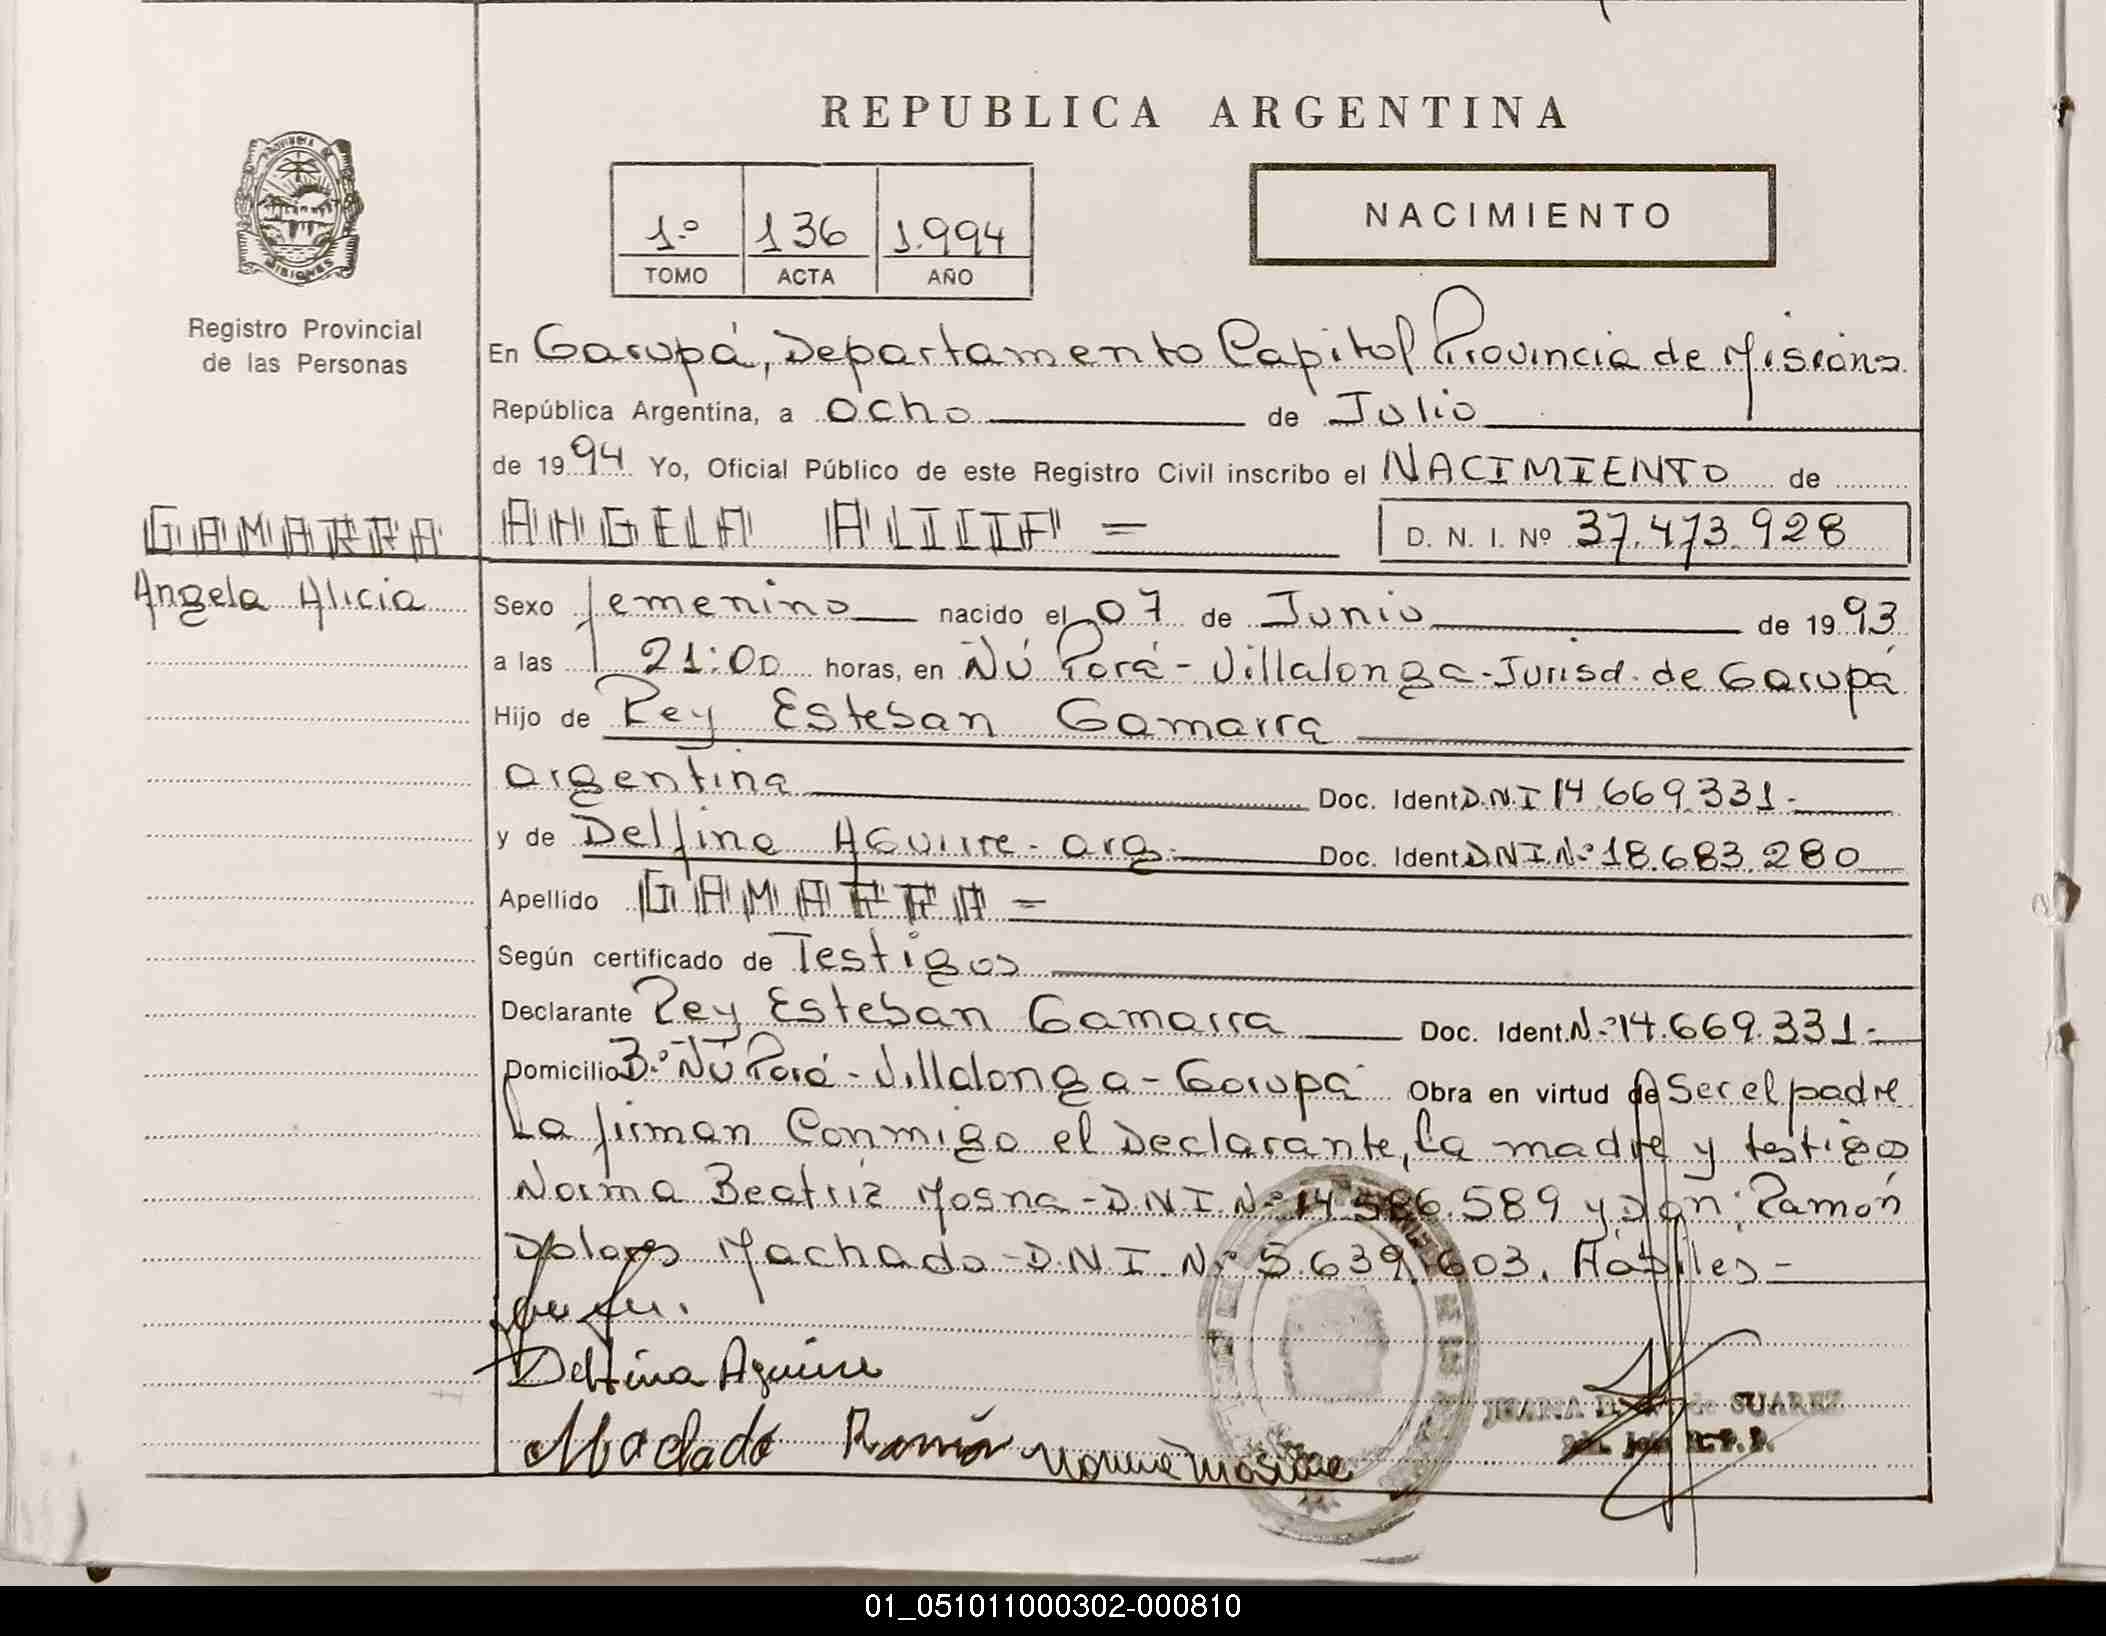 REPUBLICA ARGENTINA
PROVINCIA DE
MISIONES
Registro Provincial
de las Personas
1.º 136 1.994
TOMO ACTA AÑO
NACIMIENTO
En Garupá, Departamento Capital Provincia de Misiones
República Argentina, a ocho de Julio
de 1994 Yo, Oficial Público de este Registro Civil inscribo el NACIMIENTO de
GAMARRA
Angela Alicia
ANGELA ALICIA = D. N. I. Nº 37.473.928
Sexo femenino nacido el 07 de Junio de 1993
a las 21:00 horas, en Ñú Porá - Villalonga - Jurisd. de Garupá
Hijo de Rey Esteban Gamarra
argentina Doc. Ident. D.N.I 14.669.331.-
y de Delfina Aguirre - arg. Doc. Ident. DNI.Nº 18.683.280
Apellido GAMARRA =
Según certificado de Testigos
Declarante Rey Esteban Gamarra Doc. Ident. Nº 14.669.331.-
Domicilio Bº Ñú Porá - Villalonga - Garupá Obra en virtud de Ser el padre
La firman Conmigo el Declarante, la madre y testigos
Norma Beatriz Mosna - D.N.I. Nº 14.586.589 y Don: Ramón
Dolores Machado - D.N.I. Nº 5.639.603. Hábiles -
Delfina Aguirre
Machado Ramón Norma Mosna
JUANA D. de SUAREZ
01_051011000302-000810